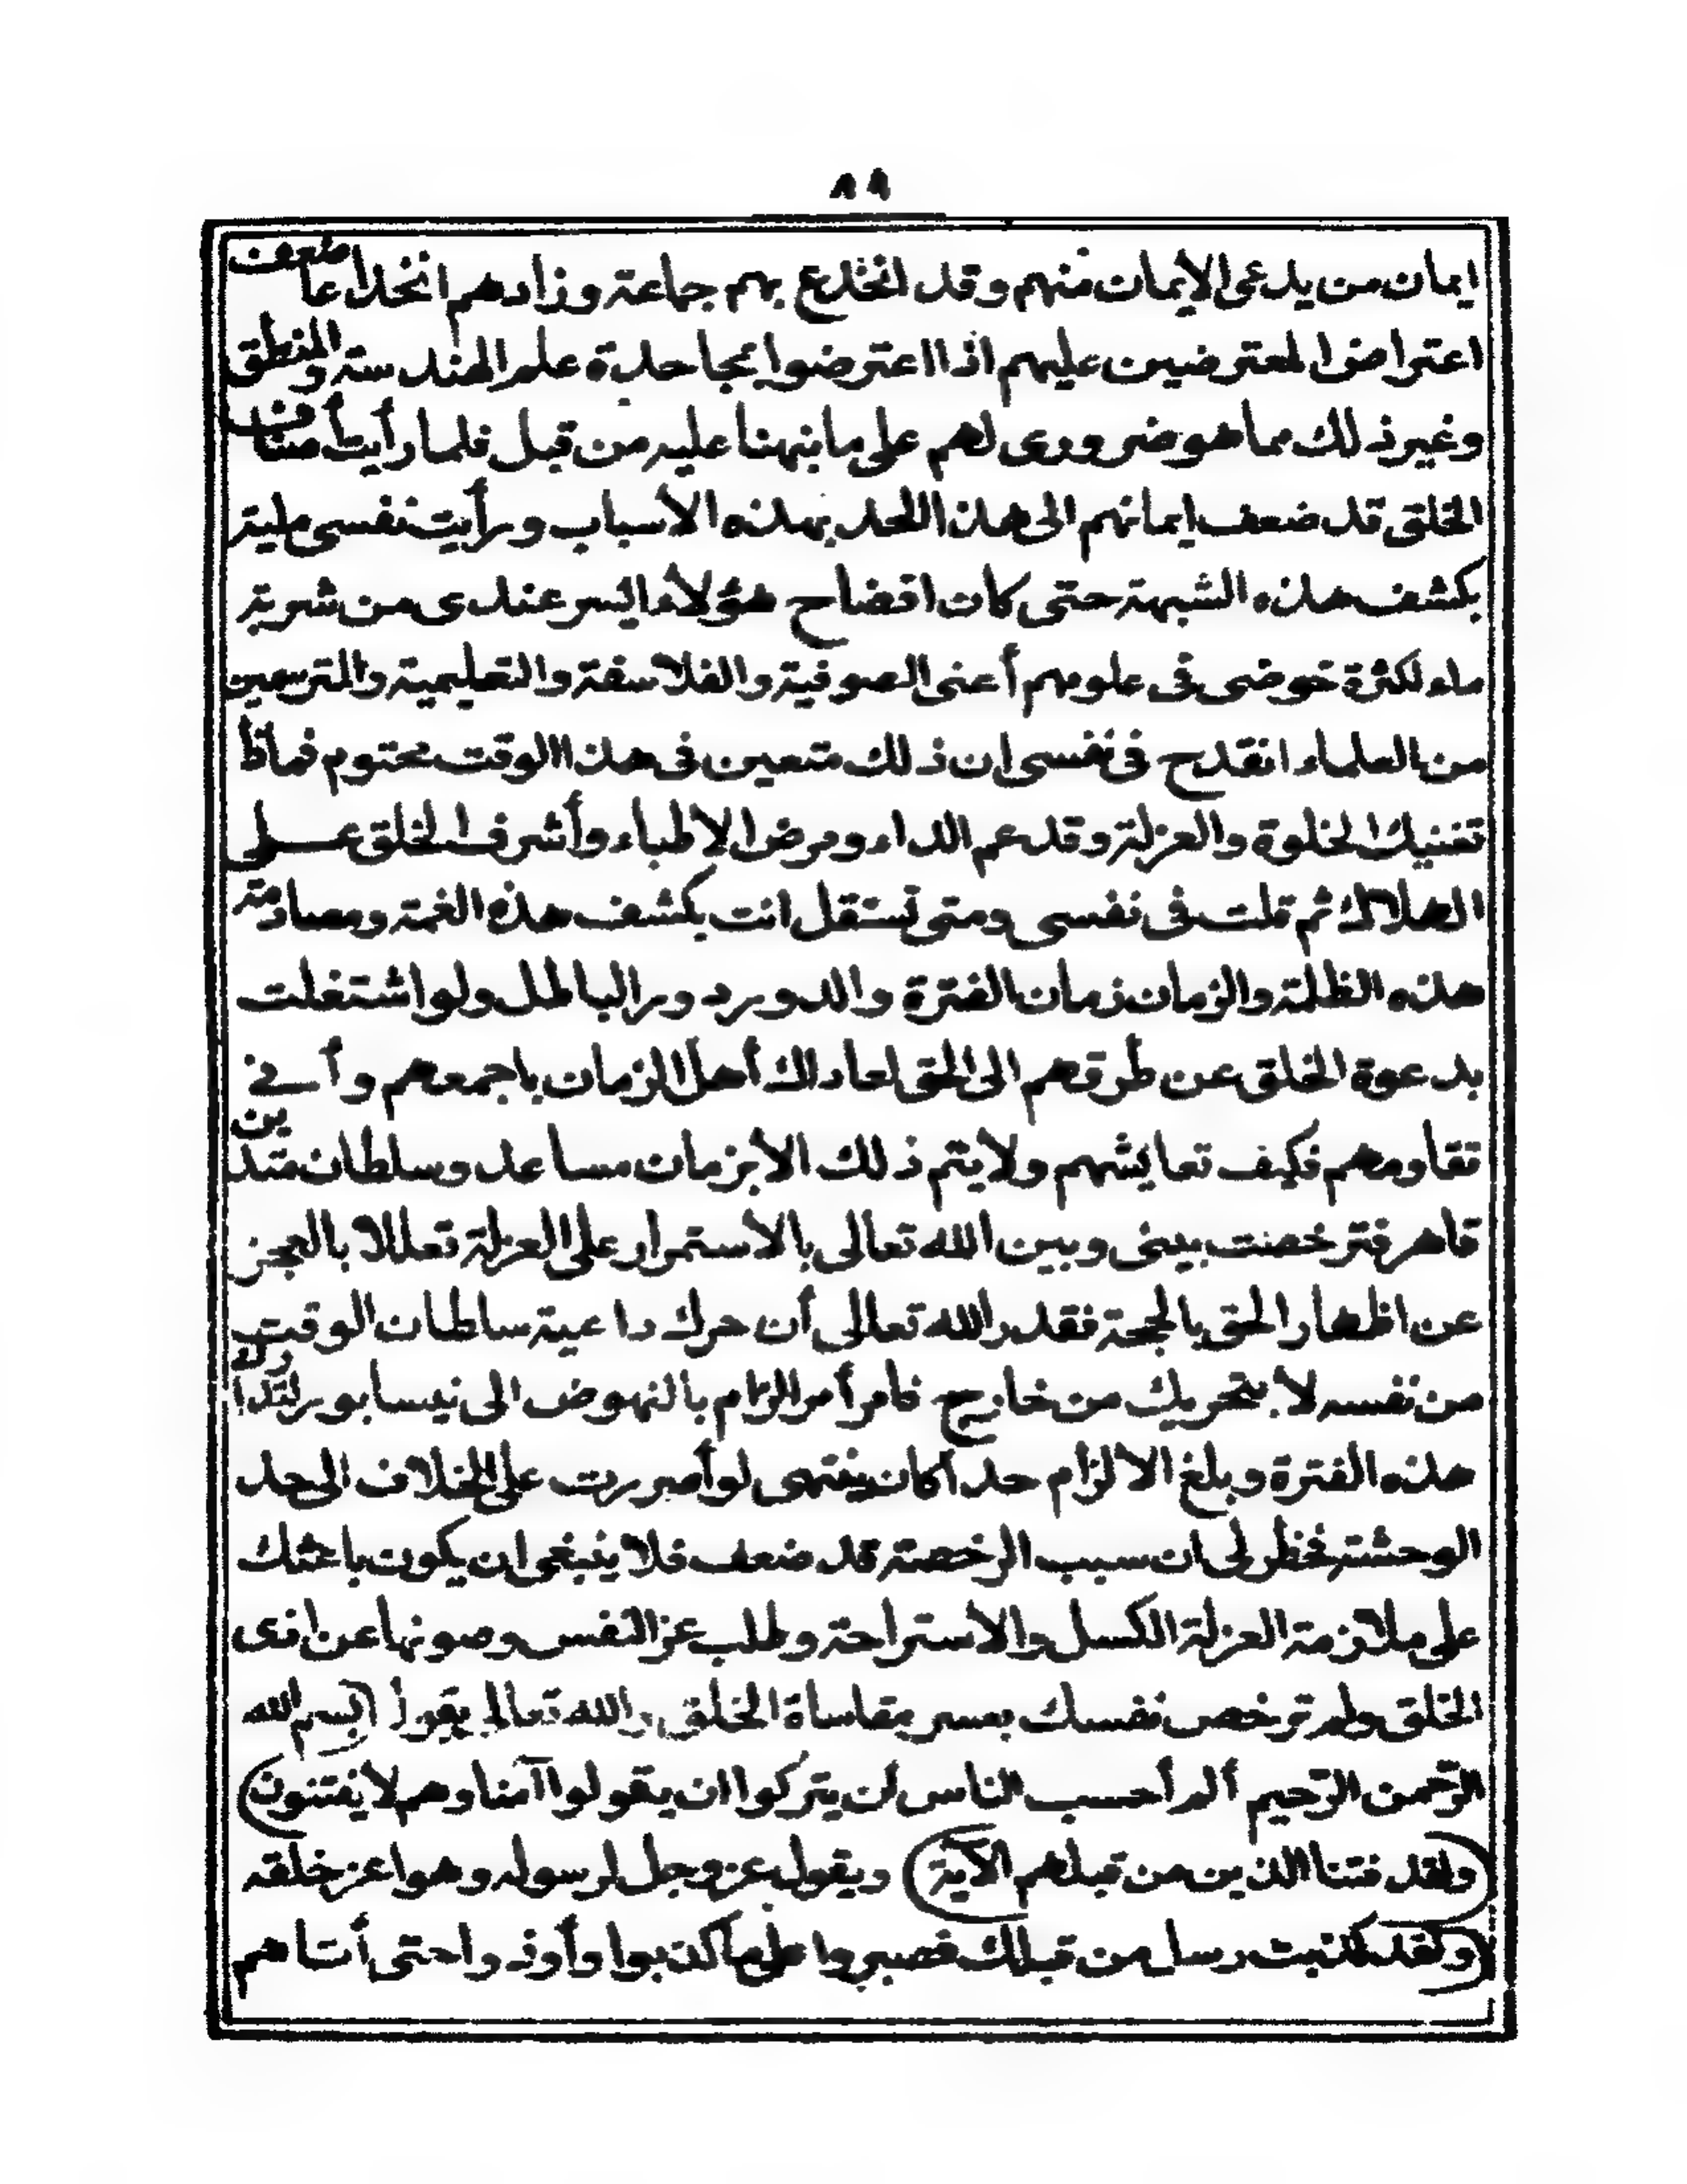 ٨٩
ايمان من يدعى الايمان منهم وقد انخدع بهم جماعة وزادهم انخداعا ضعف
اعتراض المعترضين عليهم اذا اعترضوا بمجاحدة علم الهندسة والمنطق
وغير ذلك مما هو ضرورى لهم على ما نبهنا عليه من قبل فلما رأيت أصناف
الخلق قد ضعف ايمانهم الى هذا الحد بهذه الاسباب ورأيت نفسى ملية
بكشف هذه الشبهة حتى كان افضاح هؤلاء ايسر عندى من شربة
ماء لكثرة خوضى فى علومهم أعنى الصوفية والفلاسفة والتعليمية والمترسمين
من العلماء انقدح فى نفسى ان ذلك متعين فى هذا الوقت محتوم فماذا
تغنيك الخلوة والعزلة وقد عم الداء ومرض الاطباء وأشرف الخلق على
الهلاك ثم قلت فى نفسى ومتى تستقل انت بكشف هذه الغمة ومصادمة
هذه الظلمة والزمان زمان الفترة والدور دور الباطل ولو اشتغلت
بدعوة الخلق عن طرقهم الى الحق لعاداك أهل الزمان باجمعهم وأنى
تقاومهم فكيف تعايشهم ولا يتم ذلك الا بزمان مساعد وسلطان متدين
قاهر فترخصت بينى وبين الله تعالى بالاستمرار على العزلة تعللا بالعجز
عن اظهار الحق بالحجة فقدر الله تعالى أن حرك داعية سلطان الوقت
من نفسه لا بتحريك من خارج فامر أمر الزام بالنهوض الى نيسابور لتدارك
هذه الفترة وبلغ الالزام حدا كان ينتهى لو أصررت على الخلاف الى حد
الوحشة فخطر لى ان سبب الرخصة قد ضعف فلا ينبغى ان يكون باعثك
على ملازمة العزلة الكسل والاستراحة وطلب عز النفس وصونها عن اذى
الخلق ولم ترخص نفسك بعسر مقاساة الخلق والله تعالى يقول (بسم الله
الرّحمن الرّحيم ألم أحسب الناس أن يتركوا ان يقولوا آمنا وهم لا يفتنون)
(ولقد فتنا الذين من قبلهم الآية) ويقول عز وجل لرسوله وهو اعز خلقه
(ولقد كذبت رسل من قبلك فصبروا على ما كذبوا وأوذوا حتى أتاهم